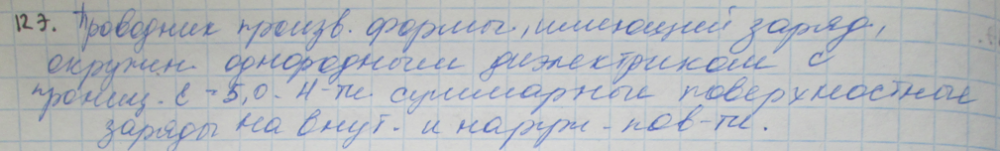 127. Проводник произв. формы, имеющий заряд,
окружен. однородным диэлектриком с
прониц. ε = 5,0. Н-ти суммарные поверхностные
заряды на внут. и наруж. пов-ти.